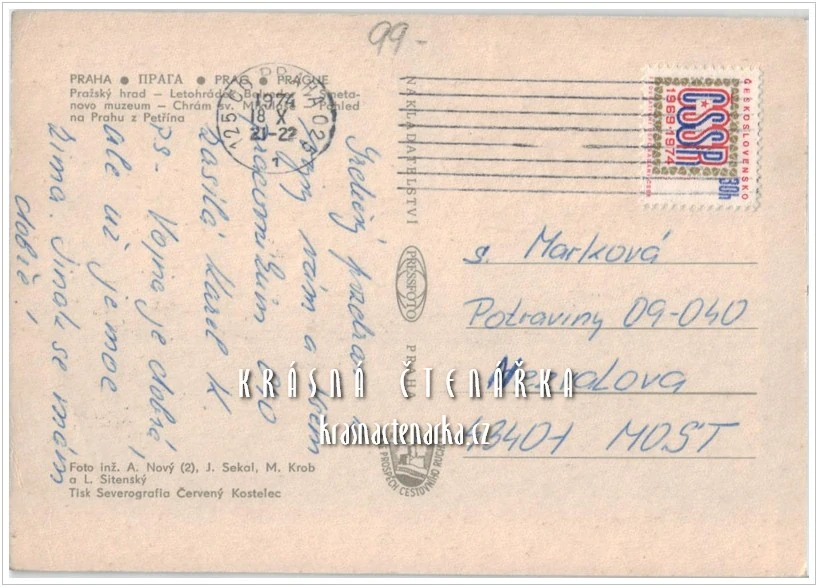 99-
PRAHA ● ПРАГА ● PRAG ● PRAGUE
Pražský hrad — Letohrádek Smetanovo muzeum — Chrám sv. Pohled
na Prahu z Petřína
125 PRAHA 025
1974
18 X
21-22
1
NAKLADATELSTVÍ PRESSFOTO PRAHA
ČESKOSLOVENSKO
ČSSR
1969-1974
30h
Srdečný pozdrav z
Vám a všem
040
Zasílá Karel K
PS- Vojna je dobrá,
ale už je moc
zima. Jinak se mám
dobře!
s. Marková
Potraviny 09-040
Nezvalova
43401 MOST
KRÁSNÁ ČTENÁŘKA
krasnactenarka.cz
VE PROSPĚCH CESTOVNÍHO RUCHU
Foto inž. A. Nový (2), J. Sekal, M. Krob
a L. Sitenský
Tisk Severografia Červený Kostelec